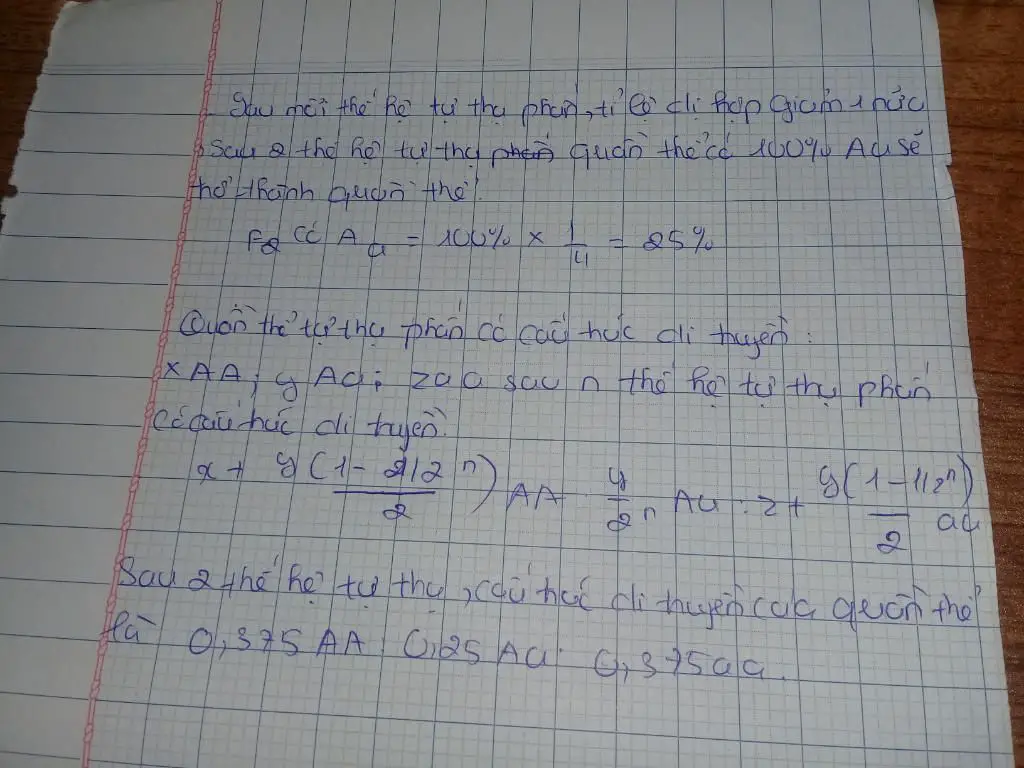 Sau mỗi thế hệ tự thụ phấn, tỉ lệ dị hợp giảm 1 nửa
Sau 2 thế hệ tự thụ phấn quần thể có 100% Aa sẽ
thành quần thể:
F2 có Aa = 100% x 1/4 = 25%
Quần thể tự thụ phấn có cấu trúc di truyền:
xAA; yAa; zaa sau n thế hệ tự thụ phấn
có cấu trúc di truyền.
x + y(1 - 2/2^n)/2 AA y/2^n Aa : z + y(1 - 1/2^n)/2 aa
Sau 2 thế hệ tự thụ, cấu trúc di truyền của quần thể
là 0,375 AA : 0,25 Aa : 0,375 aa.